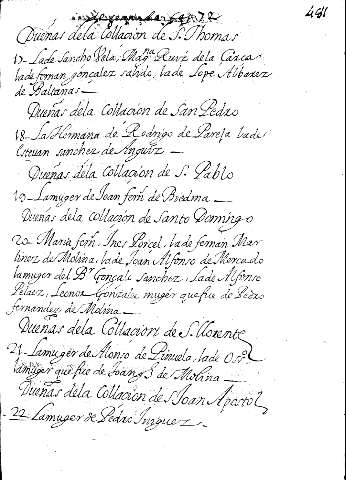 481
Dueñas dela Collacion de S. Thomas
17 - La de Sancho Vela, Magna Ruiz de la Garça
la de fernan gonzalez salido, la de Lope Albarez
de Baltanas —
Dueñas dela Collacion de San Pedro
18 - La Hermana de Rodrigo de Pareja la de
Esteuan sanchez de
Dueñas dela Collacion de S. Pablo
19 - La muger de Joan ferrn. de Biedma —
Dueñas dela Collacion de Santo Domingo
20 - Maria ferrn. Ines Porcel, la de fernan Mar
tinez de Molina, la de Joan Alfonso de Mercado
la muger del Br. Gonçalo Sanchez, La de Alfonso
Pelaez, Leonor Gonzalez muger que fue de Pedro
fernandez de Molina —
Dueñas dela Collacion de S. Llorente
21 - La muger de Alonso de la de
la muger que fue de de Molina —
Dueñas dela Collacion de S. Joan Apostol
22 - La muger de Pedro Inyguez —